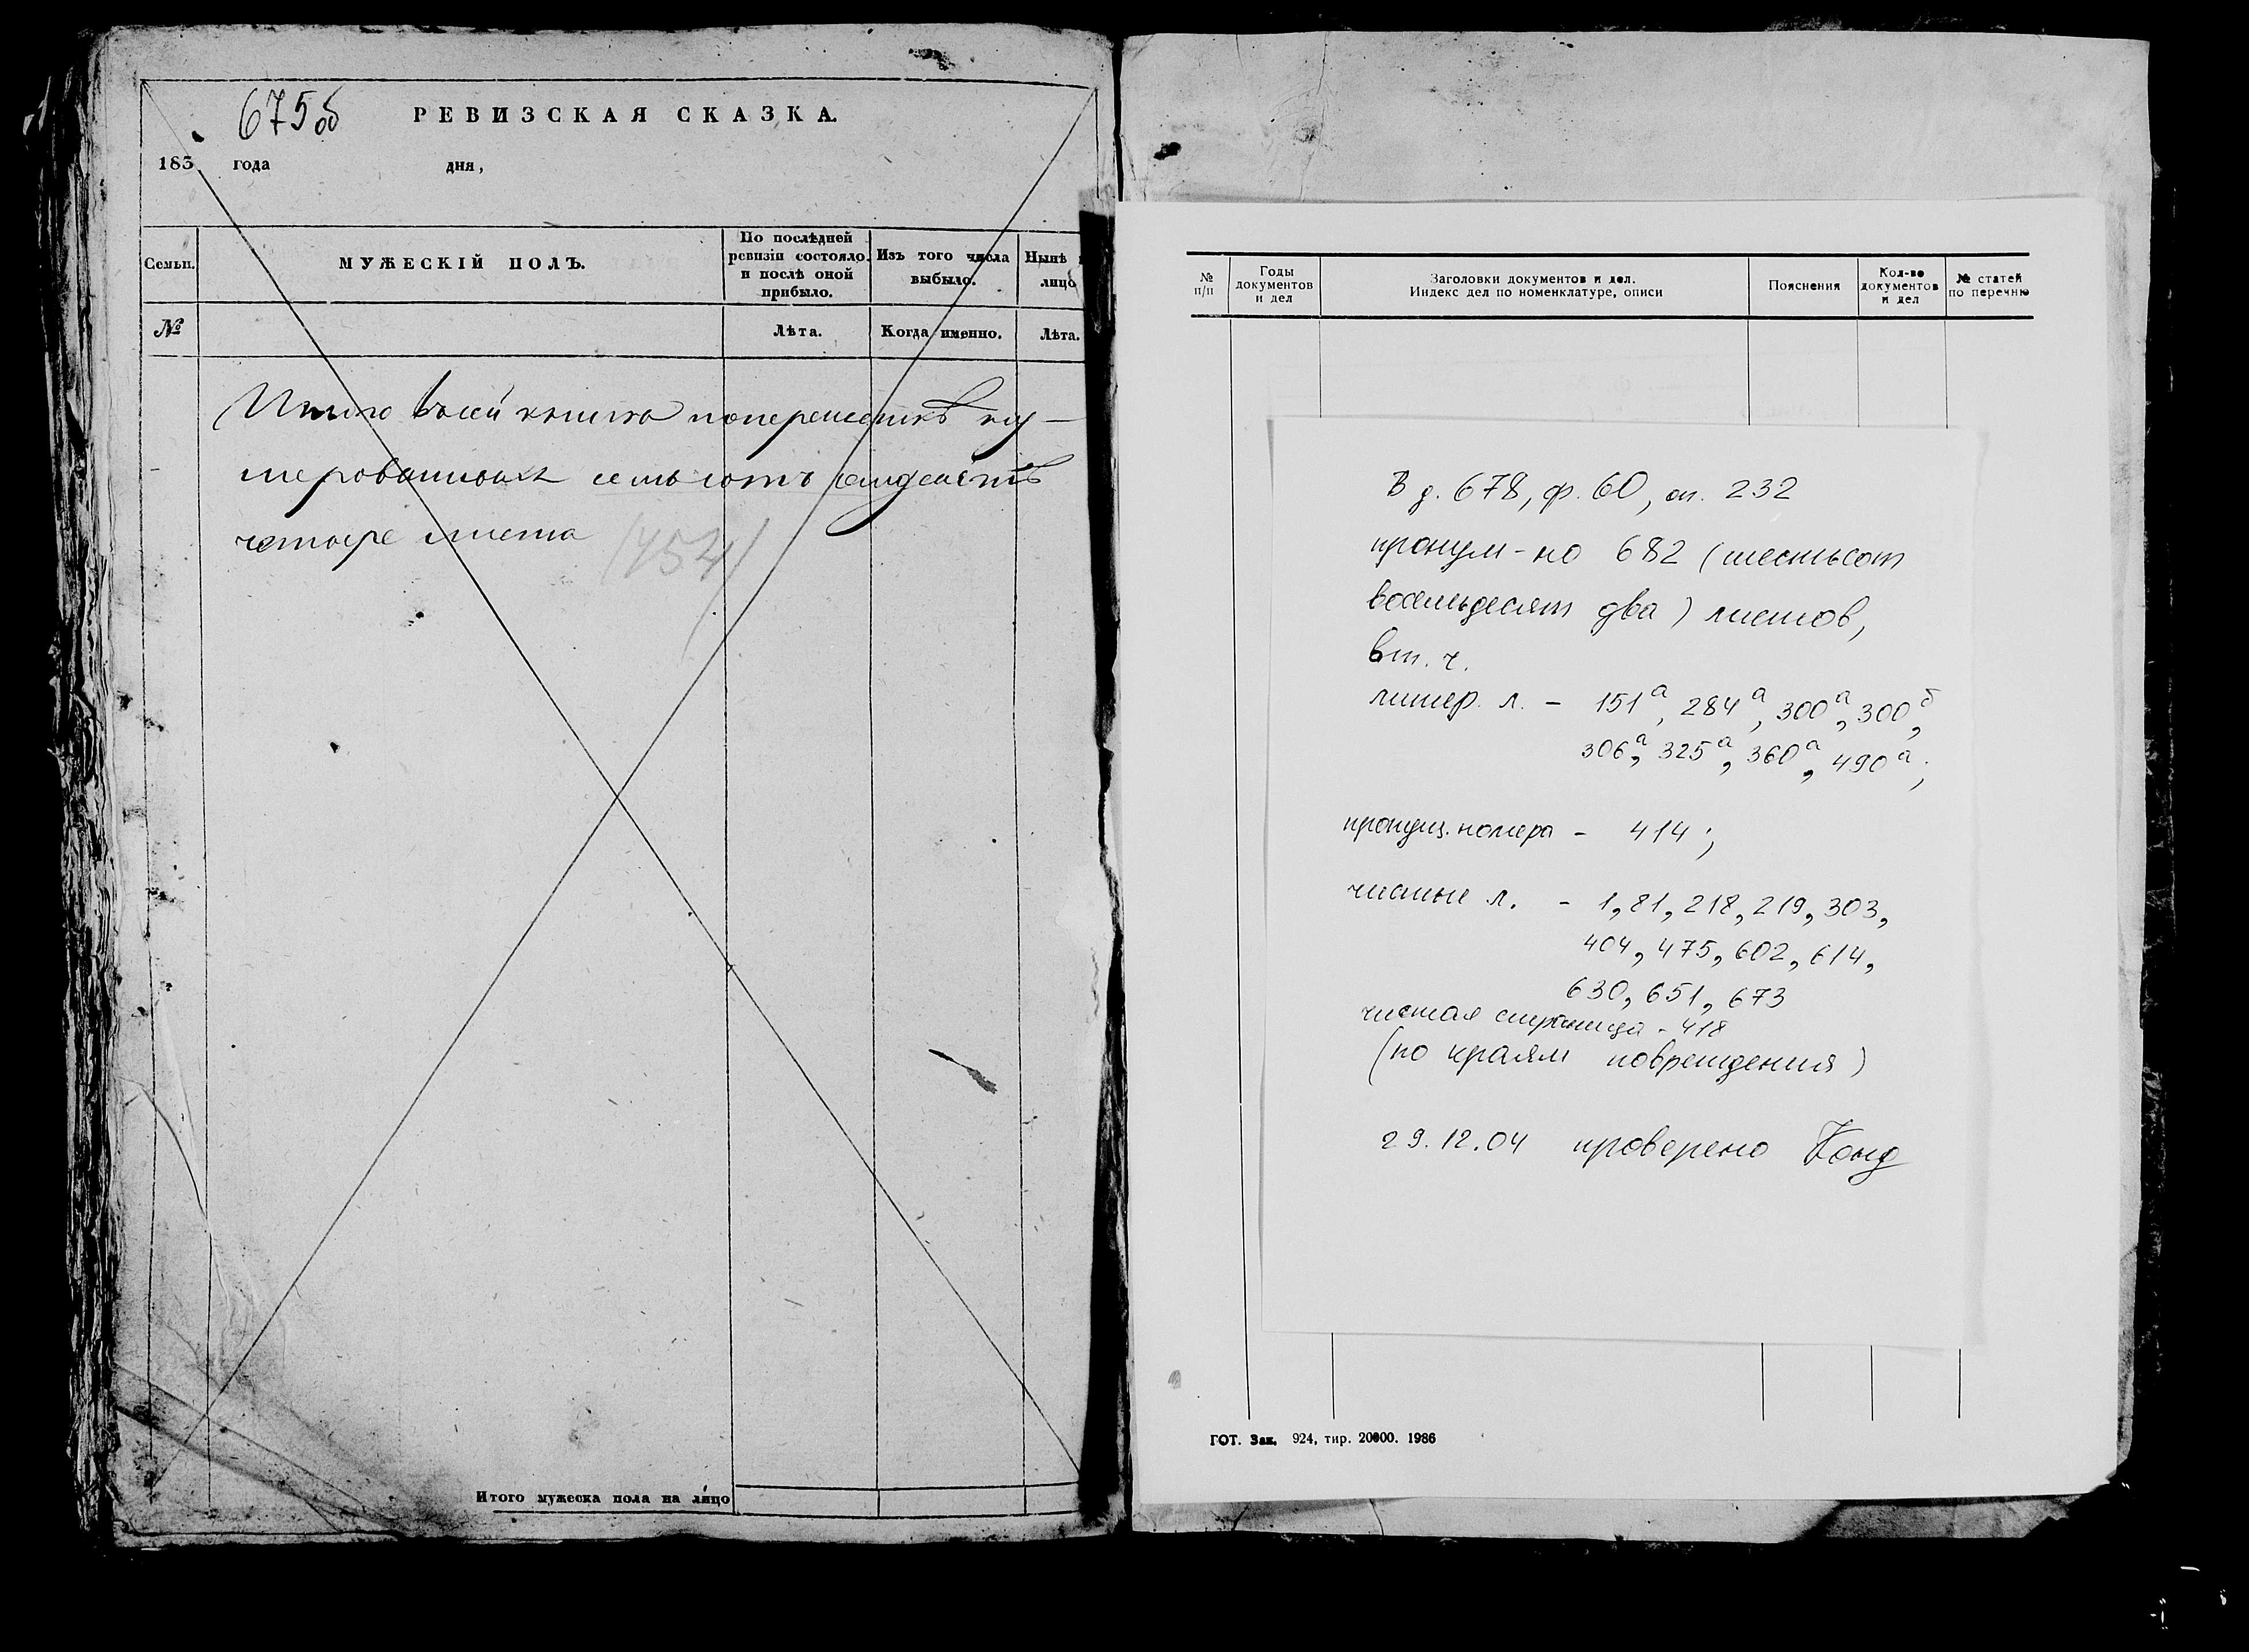 675об
РЕВИЗСКАЯ СКАЗКА.
183 года дня,
Семьи.
МУЖЕСКІЙ ПОЛЪ.
По послѣдней ревизіи состояло, и послѣ оной прибыло.
Изъ того числа выбыло.
Нынѣ
лицо
№
Лѣта.
Когда именно.
Лѣта.
Итого всей книга поперешмкѣ ну-
мерованныхъ семьсотъ
четыре листа
(754)
Итого мужеска пола на лицо
№ п/п
Годы документов и дел
Заголовки документов и дел.
Индекс дел по номенклатуре, описи
Пояснения
Кол-во документов и дел
№ статей по перечню
В д. 678, ф. 60, оп. 232
пронум-но 682 (шестьсот
восемьдесят два) листов,
в т. ч.
литер. л. - 151а, 284а, 300а, 300б,
306а, 325а, 360а, 490а;
пропущ. номера - 414;
чистые л. - 1, 81, 218, 219, 303,
404, 475, 602, 614,
630, 651, 673
чистая страница - 418
(по краям повреждения)
29.12.04 проверено Конд
ГОТ. Зак. 924, тир. 20000. 1986